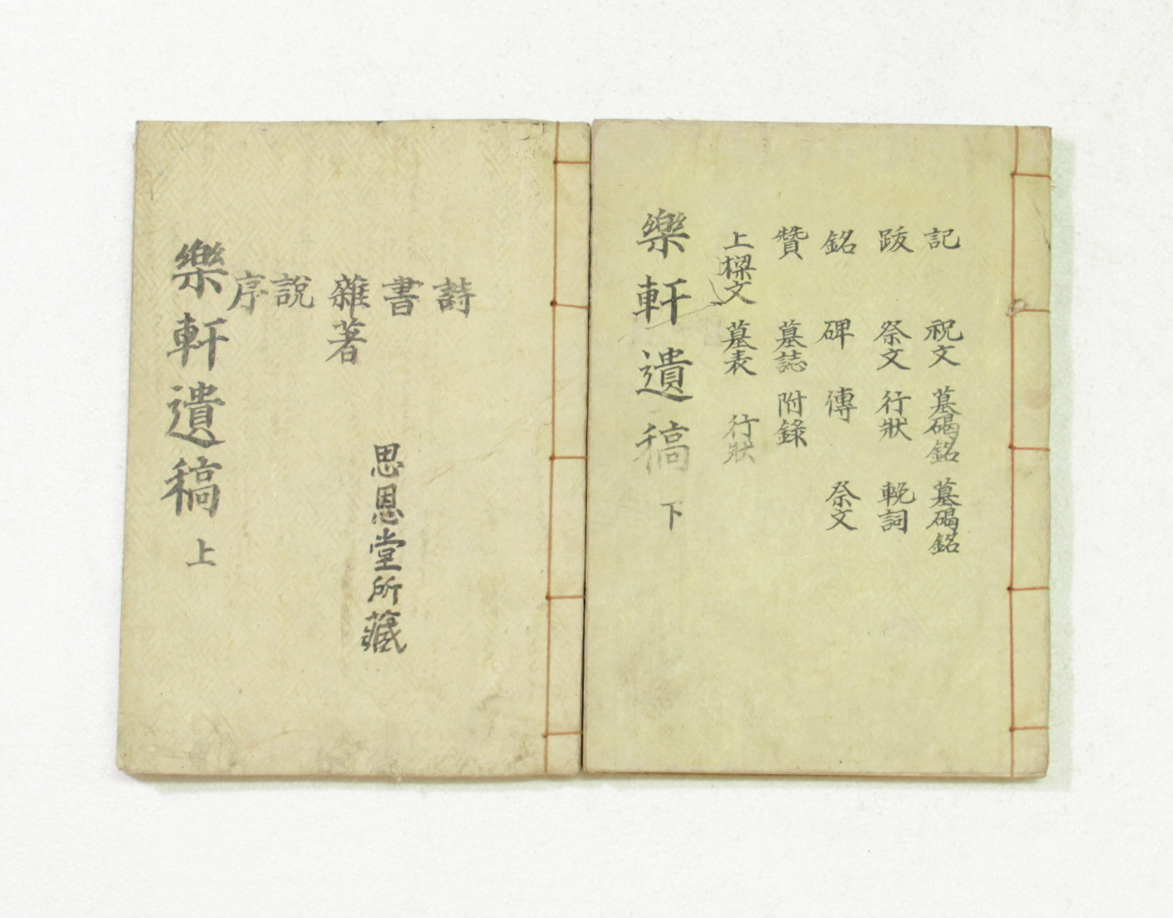 樂軒遺稿 上
詩
書
雜著
說
序
思恩堂所藏
樂軒遺稿 下
記 祝文 墓碣銘 墓碣銘
跋 祭文 行狀 輓詞
銘 碑 傳 祭文
贊 墓誌 附錄
上樑文 墓表 行狀